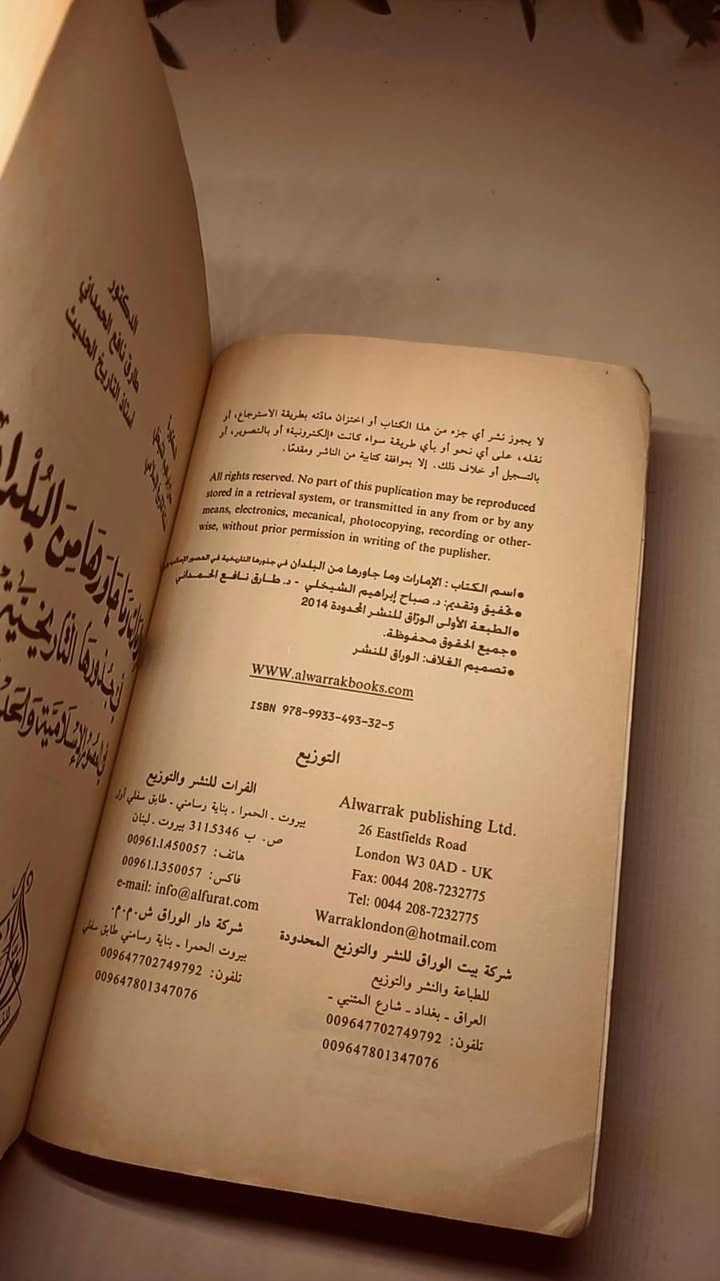 الدكتور
طارق نافع الحمداني
استاذ التاريخ الحديث
وما جاورها من البُلدان
في جذورها التاريخية
لا يجوز نشر أي جزء من هذا الكتاب أو اختزان مادته بطريقة الاسترجاع، أو
نقله، على أي نحو أو بأي طريقة سواء كانت «إلكترونية» أو بالتصوير، أو
بالتسجيل أو خلاف ذلك. إلا بموافقة كتابية من الناشر ومقدمًا.
All rights reserved. No part of this puplication may be reproduced
stored in a retrieval system, or transmitted in any from or by any
means, electronics, mecanical, photocopying, recording or other-
wise, without prior permission in writing of the puplisher.
● اسم الكتاب: الإمارات وما جاورها من البلدان في جذورها التاريخية في العصور
● تحقيق وتقديم: د. صباح إبراهيم الشيخلي - د. طارق نافع الحمداني
● الطبعة الأولى الورّاق للنشر المحدودة 2014
● جميع الحقوق محفوظة.
● تصميم الغلاف: الوراق للنشر
WWW.alwarrakbooks.com
ISBN 978-9933-493-32-5
التوزيع
Alwarrak publishing Ltd.
26 Eastfields Road
London W3 0AD - UK
Fax: 0044 208-7232775
Tel: 0044 208-7232775
Warraklondon@hotmail.com
شركة بيت الوراق للنشر والتوزيع المحدودة
للطباعة والنشر والتوزيع
العراق ـ بغداد ـ شارع المتنبي -
تلفون: 009647702749792
009647801347076
الفرات للنشر والتوزيع
بيروت ـ الحمرا ـ بناية رسامني ـ طابق سفلي أول
ص. ب 311.5346 بيروت ـ لبنان
هاتف: 00961.1.450057
فاكس: 00961.1.350057
e-mail: info@alfurat.com
شركة دار الوراق ش.م.م.
بيروت الحمرا ـ بناية رسامني طابق سفلي
تلفون: 009647702749792
009647801347076